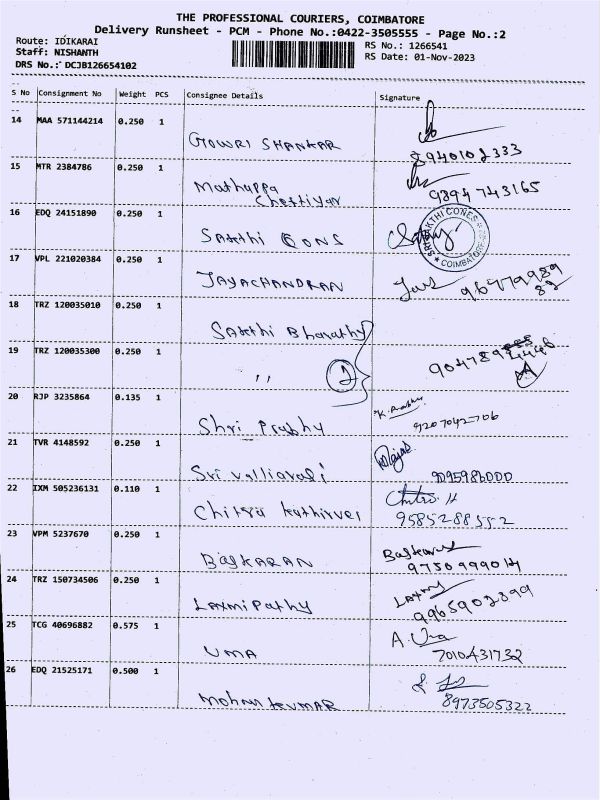 THE PROFESSIONAL COURIERS, COIMBATORE
Delivery Runsheet - PCM - Phone No.:0422-3505555 - Page No.:2
Route: IDIKARAI
RS No.: 1266541
Staff: NISHANTH
RS Date: 01-Nov-2023
DRS No.: DCJB126654102
S No Consignment No Weight PCS Consignee Details Signature
14 MAA 571144214 0.250 1
GOWRI SHANKAR
8940102333
15 MTR 2384786 0.250 1
Mathappa
Chettiyar
9894743165
16 EDQ 24151890 0.250 1
Sakthi CONS
SRI SAKTHI CONES * COIMBATORE
17 VPL 221020384 0.250 1
JAYACHANDRAN
18 TRZ 120035010 0.250 1
Sakthi Bharathy
19 TRZ 120035300 0.250 1
,, 2
20 RJP 3235864 0.135 1
Shri Prabhy
K. Prabhu
9207042706
21 TVR 4148592 0.250 1
Sri valliavali
22 IXM 505236131 0.110 1
Chitra Kathirvel
Chitra H
9585288552
23 VPM 5237670 0.250 1
BASKARAN
9750999014
24 TRZ 150734506 0.250 1
Laxmi Pathy
Laxmy
9965902399
25 TCG 40696882 0.575 1
UMA
A. Uma
7010431732
26 EDQ 21525171 0.500 1
Mohan kumar
8973505322